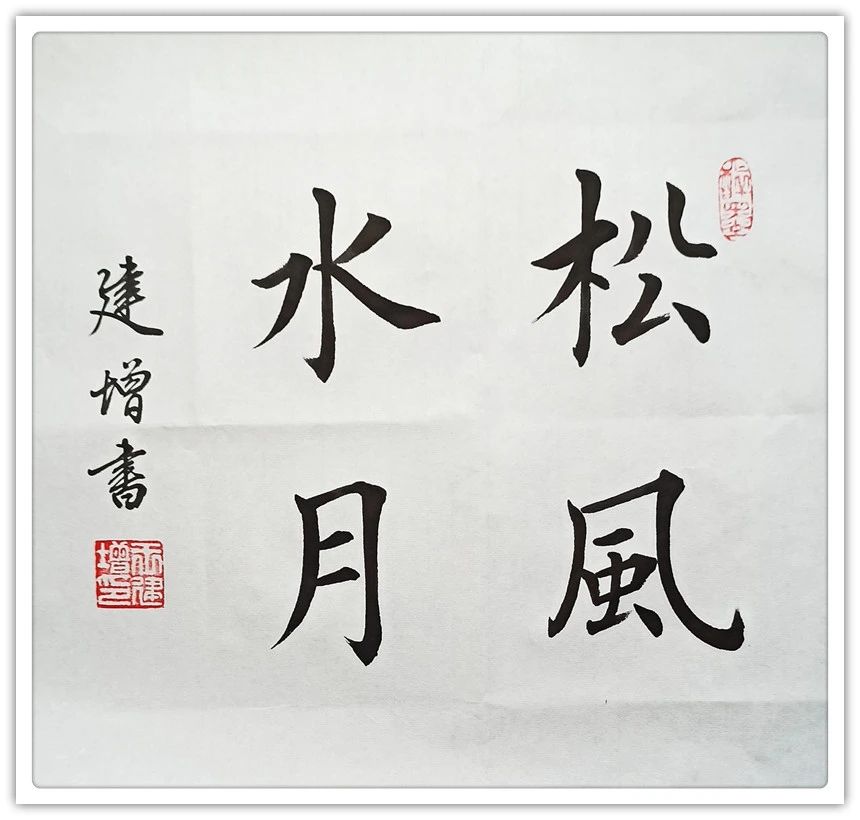 松風
水月
建增書